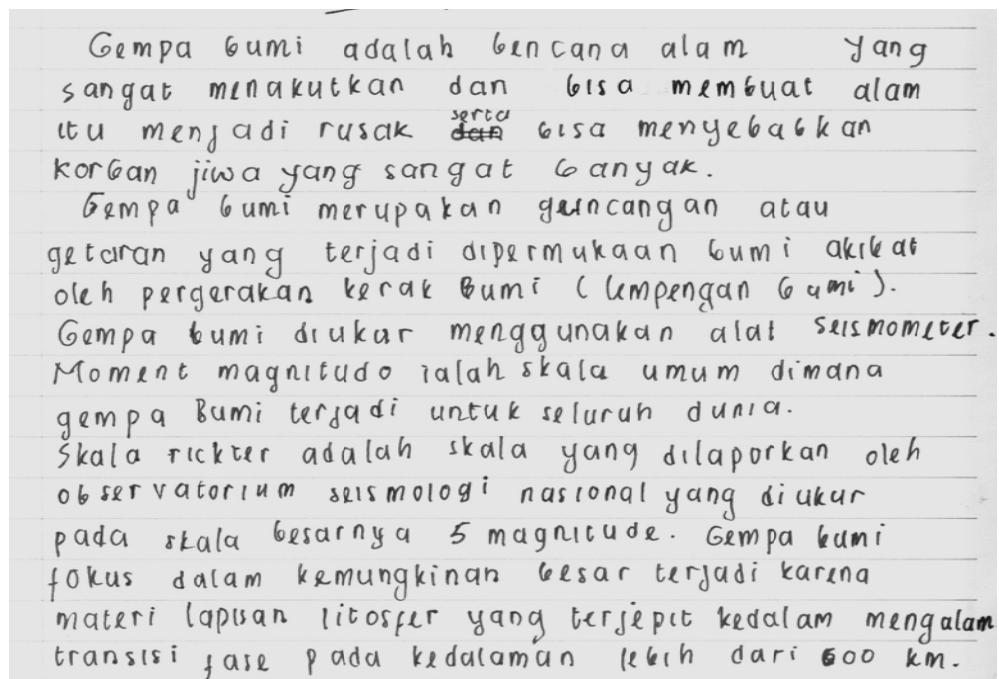 Gempa bumi adalah bencana alam yang
sangat menakutkan dan bisa membuat alam
itu menjadi rusak serta bisa menyebabkan
korban jiwa yang sangat banyak.
Gempa bumi merupakan guincangan atau
getaran yang terjadi dipermukaan bumi akibat
oleh pergerakan kerak Bumi (lempengan bumi).
Gempa bumi diukur menggunakan alat Seismometer.
Moment magnitudo ialah skala umum dimana
gempa Bumi terjadi untuk seluruh dunia.
Skala rickter adalah skala yang dilaporkan oleh
observatorium seismologi nasional yang diukur
pada skala besarnya 5 magnitude. Gempa bumi
fokus dalam kemungkinan besar terjadi karena
materi lapisan litosfer yang terjepit kedalam mengalam
transisi fase pada kedalaman lebih dari 600 km.